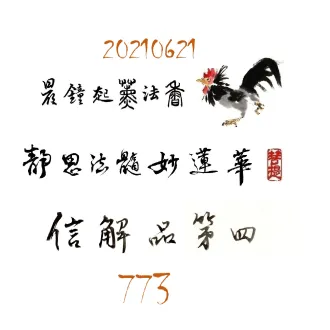 20210621
晨鐘起薰法香
靜思法髓妙蓮華
信解品第四
773